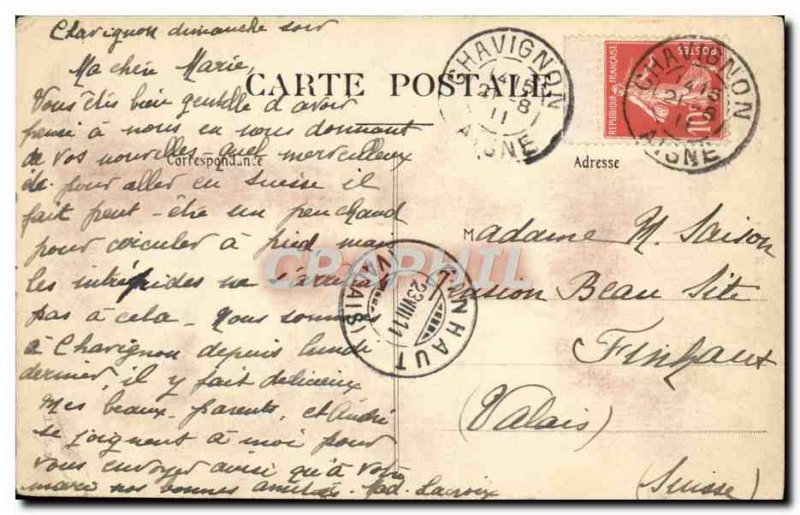 Chavignon dimanche soir
Ma chère Marie,
CARTE POSTALE
Vous êtes bien gentille d'avoir
pensé à nous en nous donnant
de vos nouvelles - quel merveilleux
Correspondance
été pour aller en Suisse il
fait peut-être un peu chaud
pour circuler à pied mais
les intrépides ne s'arrêtent
pas à cela - Nous sommes
à Chavignon depuis lundi
dernier, il y fait délicieux
Mes beaux-parents, et André
se joignent à moi pour
vous envoyer ainsi qu'à votre
mari nos bonnes amitiés. Lacroix
Adresse
Madame M. Saison
Pension Beau Site
Finhaut
(Valais)
(Suisse)
CHAVIGNON
21-8
11
AISNE
CHAVIGNON
14 15
21-8
11
AISNE
POSTES
REPUBLIQUE FRANÇAISE
10
FINHAUT
23 VIII 11
(VALAIS)
CPAPHIL